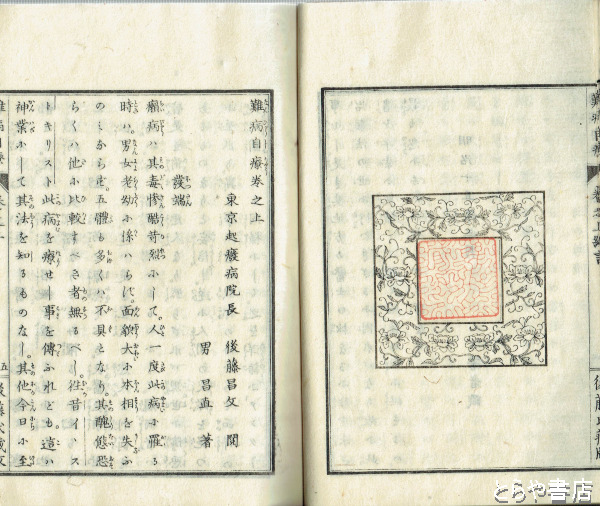 難病自療
後藤氏蔵版
難病自療巻之上
東京起癈病院長 後藤昌文 閲
男 昌直 著
發端
癩病ハ其毒惨酷苛烈にして人一度此病に罹る
時ハ男女老幼に係ハらず。面貌大に本相を失ふ
のミならず。五體も多くハ不具となり。其醜態恐
らくハ他に比較すべき者無るべし。徃昔イヱス
トキリスト此病を療せし事を傳ふれども。這ハ
神業にして其法を知るものなし。其他今日に至
難病自療
五
後藤氏蔵版
とらや書店